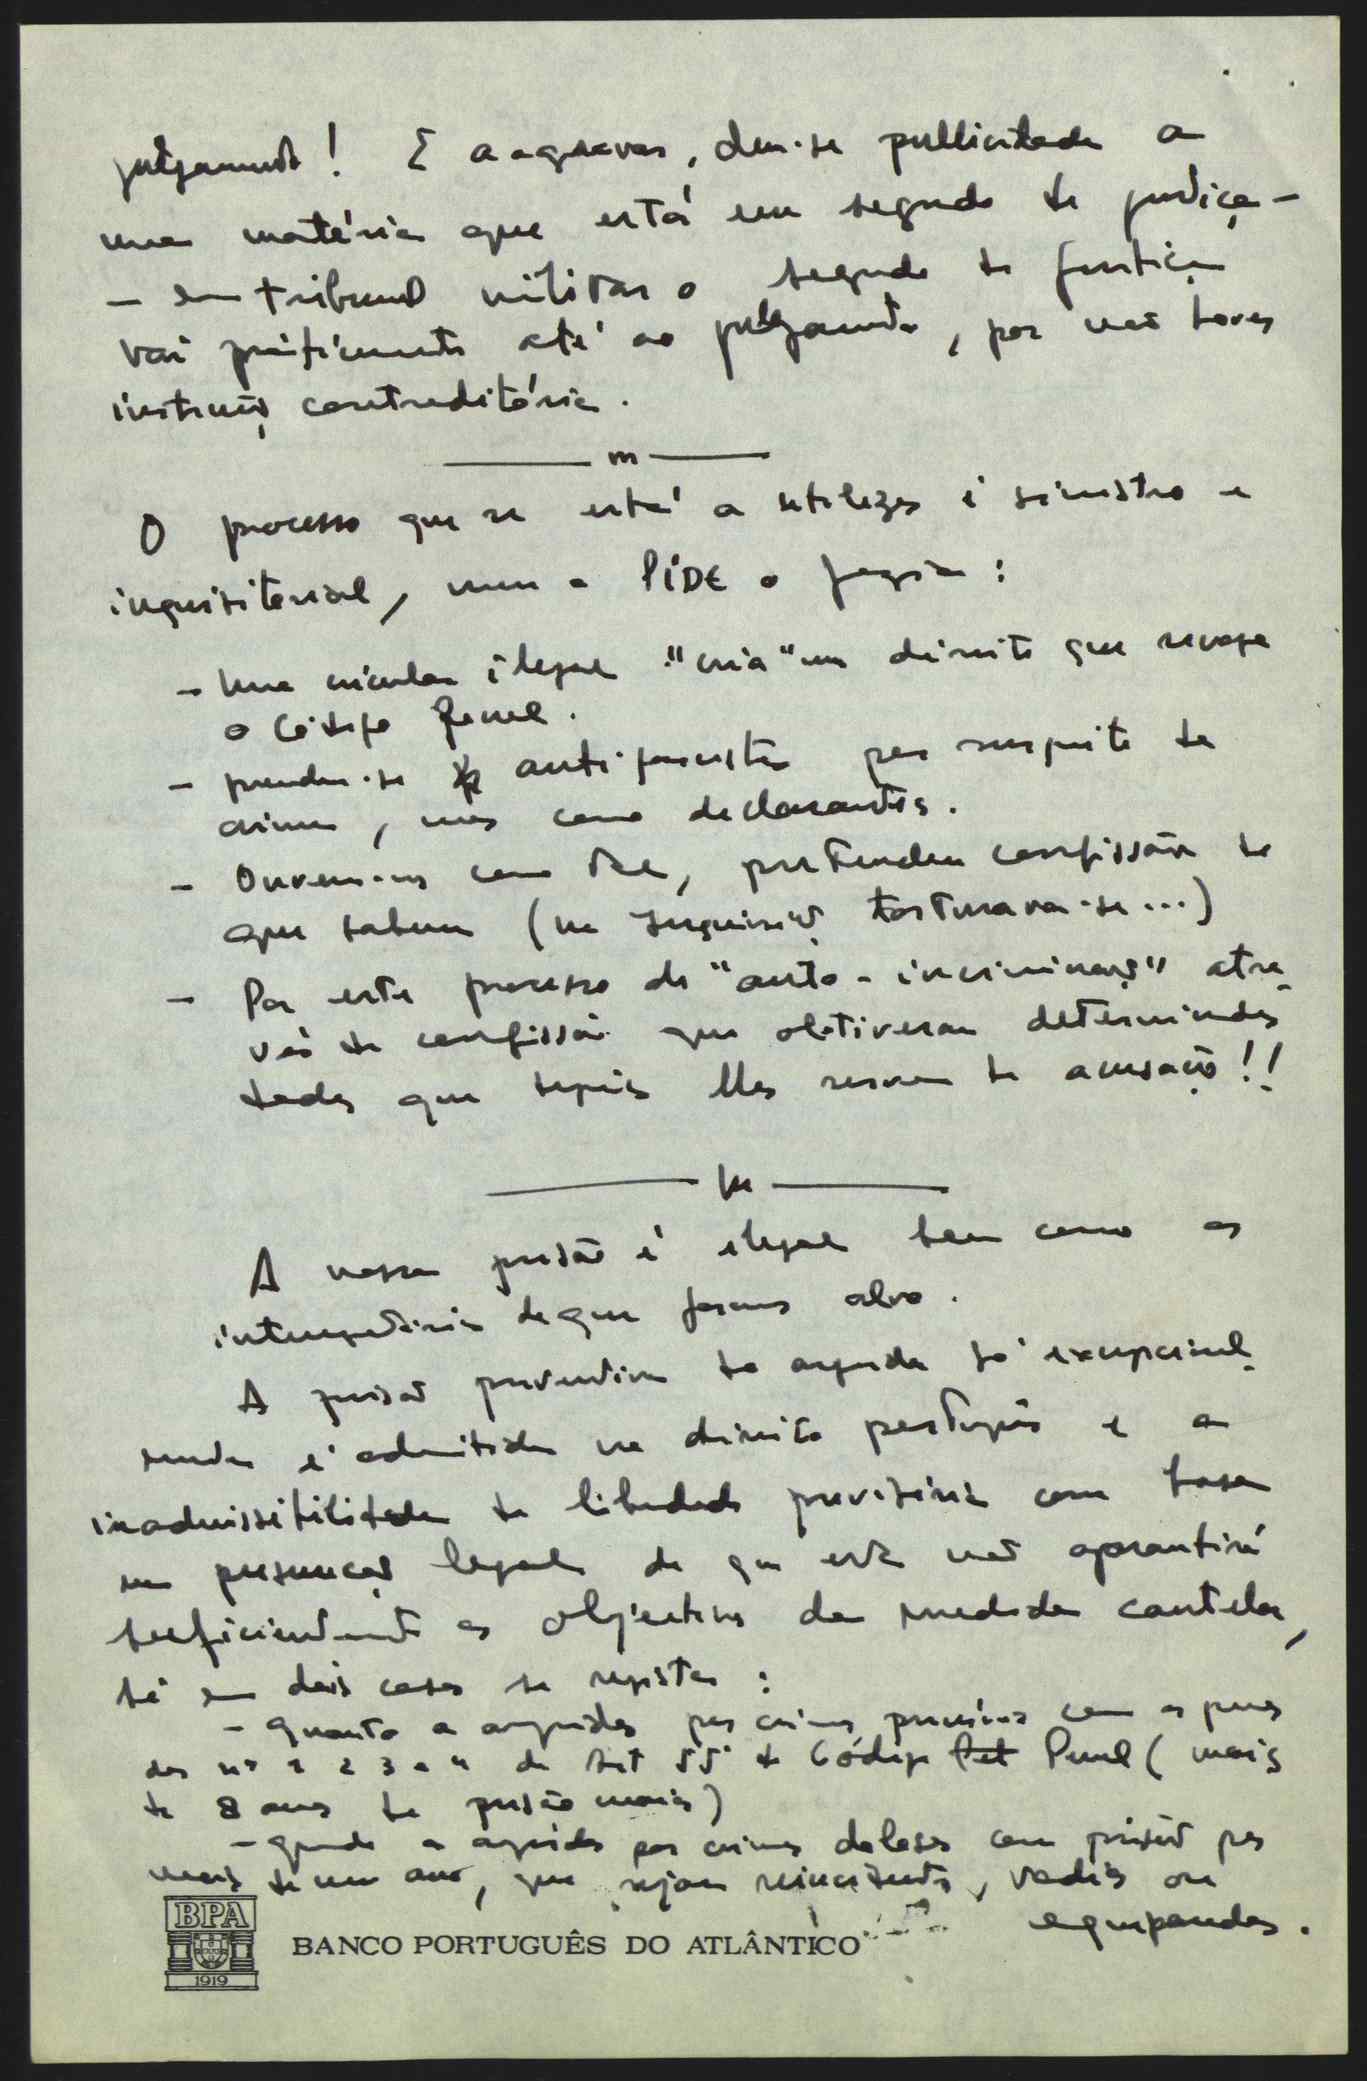 julgamento! E a agravar, deu-se publicidade a
uma matéria que está em segredo de justiça -
- em tribunal militar o segredo de justiça
vai praticamente até ao julgamento, por não haver
instrução contraditória.
—— m ——
O processo que se está a utilizar é sinistro e
inquisitorial, nem a PIDE o fazia:
- Uma circular ilegal "cria" um direito que revoga
o Código Penal.
- prendem-se antifascistas por suspeita de
crime, mas como declarantes.
- Ouvem-nos como tal, pretendem confissão do
que sabem (na Inquisição torturava-se...)
- Por este processo de "auto-incriminação" atra-
vés de confissão que obtiveram determinados
dados que depois lhes servem de acusação!!
—— m ——
A nossa prisão é ilegal bem como os
interrogatórios de que fomos alvo.
A prisão preventiva do arguido só excepcional-
mente é admitida no direito português e a
inadmissibilidade de liberdade provisória com base
na presunção legal de que esta não garantirá
suficientemente os objectivos da medida cautelar,
só em dois casos se regista:
- Quanto a arguidos por crimes puníveis com as penas
dos nºs 1 2 3 e 4 do Art 55º do Código Pel Penal (mais
de 8 anos de prisão maior)
- quando a arguidos por crimes dolosos com prisão por
mais de um ano, que sejam reincidentes, vadios ou
equiparados.
BPA
1919
BANCO PORTUGUÊS DO ATLÂNTICO